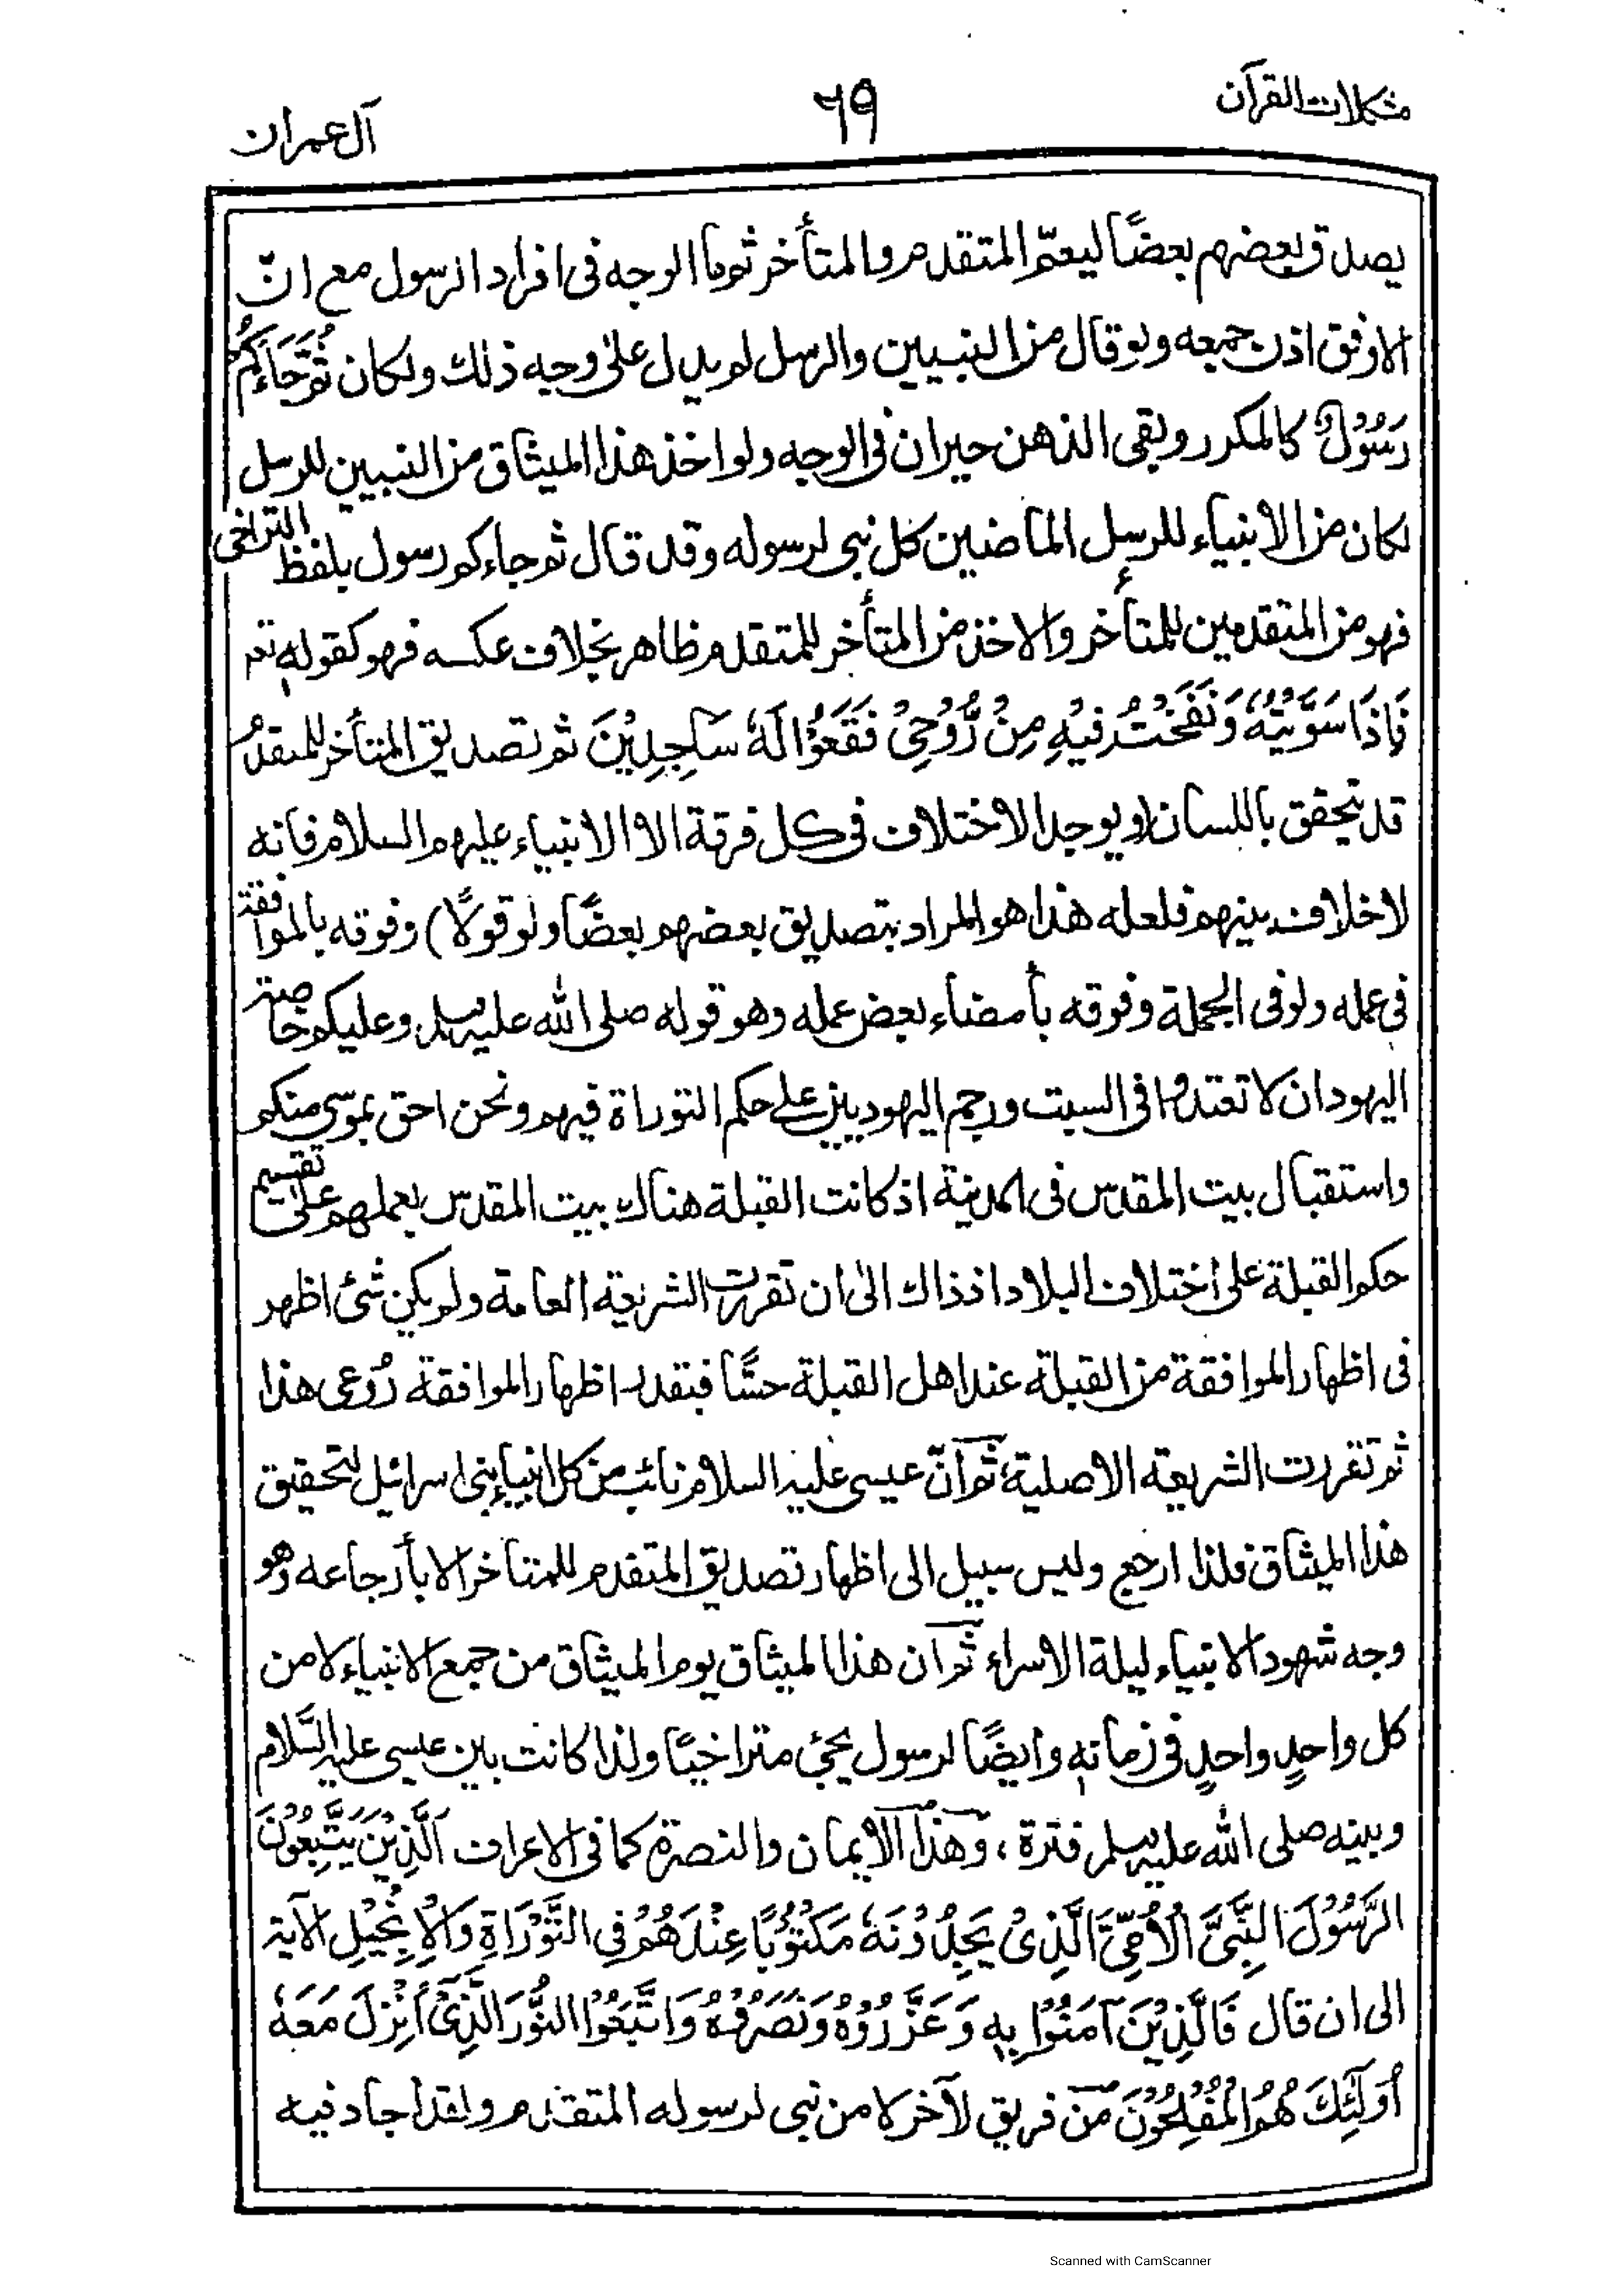 مشكلات القرآن
٦٩
آل عمران
يصدق بعضهم بعضًا ليعمّ المتقدم والمتأخر ثم ما الوجه فى افراد الرسول مع انّ
الاوفق اذن جمعه ولو قال من النبيين والرسل لم يدل على وجه ذلك ولكان ثُمَّ جَاءَكُمْ
رَسُوْلٌ كالمكرر وبقى الذهن حيران فى الوجه ولو اخذ هذا الميثاق من النبيين للرسل
لكان من الانبياء للرسل الماضين كل نبى لرسوله وقد قال ثم جاءكم رسول بلفظ التراخى
فهو من المتقدمين للمتأخر والاخذ من المتأخر للمتقدم ظاهر بخلاف عكسه فهو كقوله تعم
فَاِذَا سَوَّيْتُهٗ وَنَفَخْتُ فِيْهِ مِنْ رُّوْحِىْ فَقَعُوْا لَهٗ سَاجِدِيْنَ ثم تصديق المتأخر للمتقدم
قد تحقق باللسان (ويوجد الاختلاف فى كل فرقة الا الانبياء عليهم السلام فانه
لا خلاف بينهم فلعله هذا هو المراد بتصديق بعضهم بعضًا ولو قولًا) وفوقه بالموافقة
فى عمله ولو فى الجملة وفوقه بأمضاء بعض عمله وهو قوله صلى الله عليه وسلم وعليكم خاصة
اليهود ان لا تعتدوا فى السبت ورجم اليهوديين على حكم التوراة فيهم ونحن احق بموسى منكم
واستقبال بيت المقدس فى المدينة اذ كانت القبلة هناك بيت المقدس بعملهم على تقسيم
حكم القبلة على اختلاف البلاد اذ ذاك الى ان تقررت الشريعة العامة ولم يكن شئ اظهر
فى اظهار الموافقة من القبلة عند اهل القبلة حسًّا فبقدر اظهار الموافقة رُوعى هذا
ثم تقررت الشريعة الاصلية ثم انّ عيسى عليه السلام نائب من كل انبياء بنى اسرائيل لتحقيق
هذا الميثاق فلذا ارجع وليس سبيل الى اظهار تصديق المتقدم للمتاخر الا بأرجاعه وهو
وجه شهود الانبياء ليلة الاسراء ثم ان هذا الميثاق يوم الميثاق من جمع الانبياء لا من
كل واحدٍ واحدٍ فى زمانه وايضًا لرسول يجئ متراخيًا ولذا كانت بين عيسى عليه السَّلام
وبينه صلى الله عليه وسلم فترة ، وهذا الايمان والنصرة كما فى الاعراف اَلَّذِيْنَ يَتَّبِعُوْنَ
الرَّسُوْلَ النَّبِىَّ الْاُمِّىَّ الَّذِىْ يَجِدُوْنَهٗ مَكْتُوْبًا عِنْدَهُمْ فِى التَّوْرَاةِ وَالْاِنْجِيْلِ الآية
الى ان قال فَالَّذِيْنَ آمَنُوْا بِهٖ وَعَزَّرُوْهُ وَنَصَرُوْهُ وَاتَّبَعُوْا النُّوْرَ الَّذِىْ اُنْزِلَ مَعَهٗ
اُولٰئِكَ هُمُ الْمُفْلِحُوْنَ من فريق لآخر لا من نبى لرسوله المتقدم ولقد اجاد فيه
Scanned with CamScanner